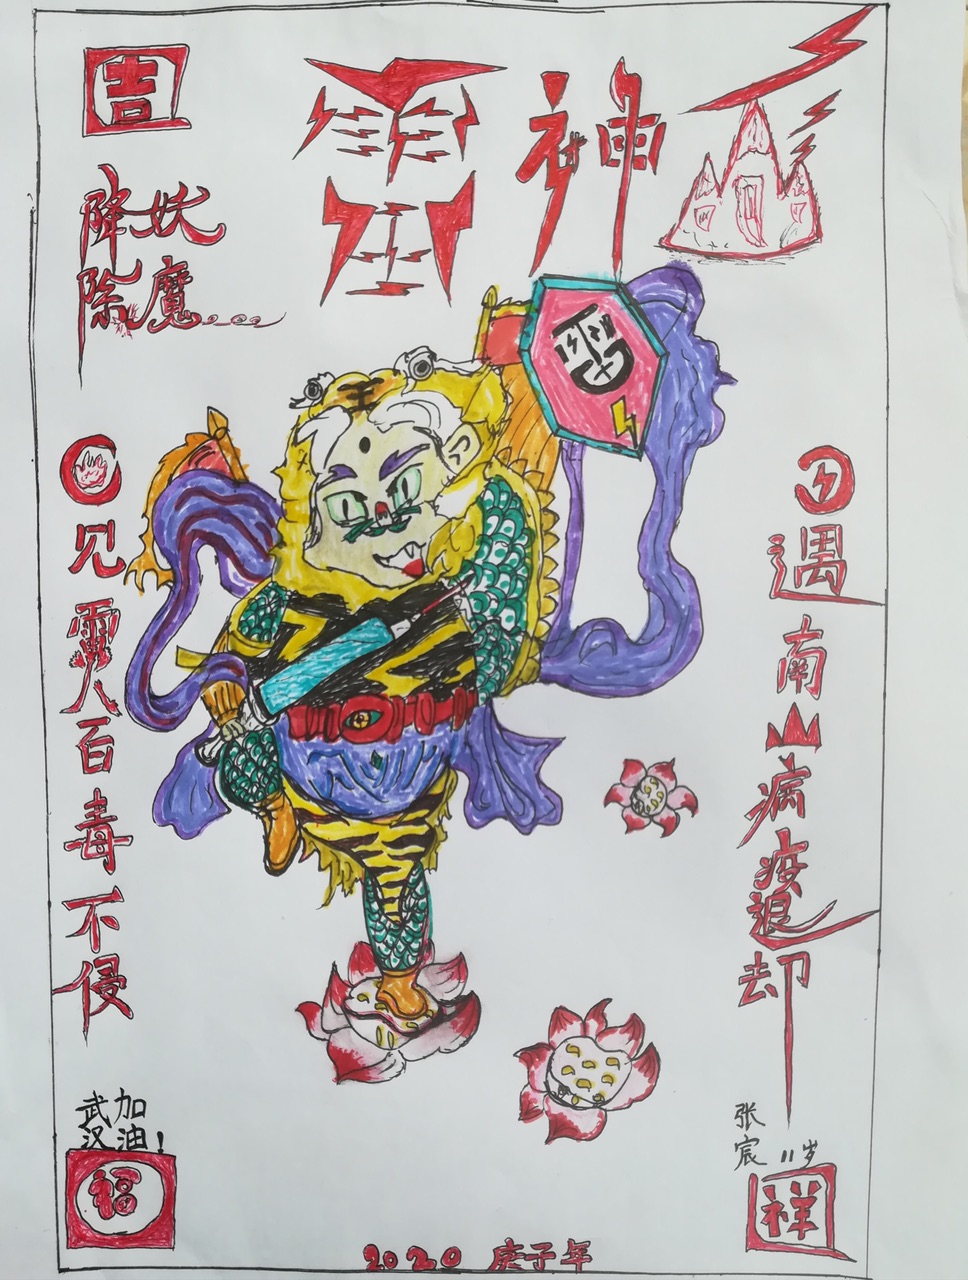 吉
雷神山
降妖
除魔
雷
见人百毒不侵
遇南山病疫退却
武汉
加油!
福
张宸 11岁
祥
2020 庚子年